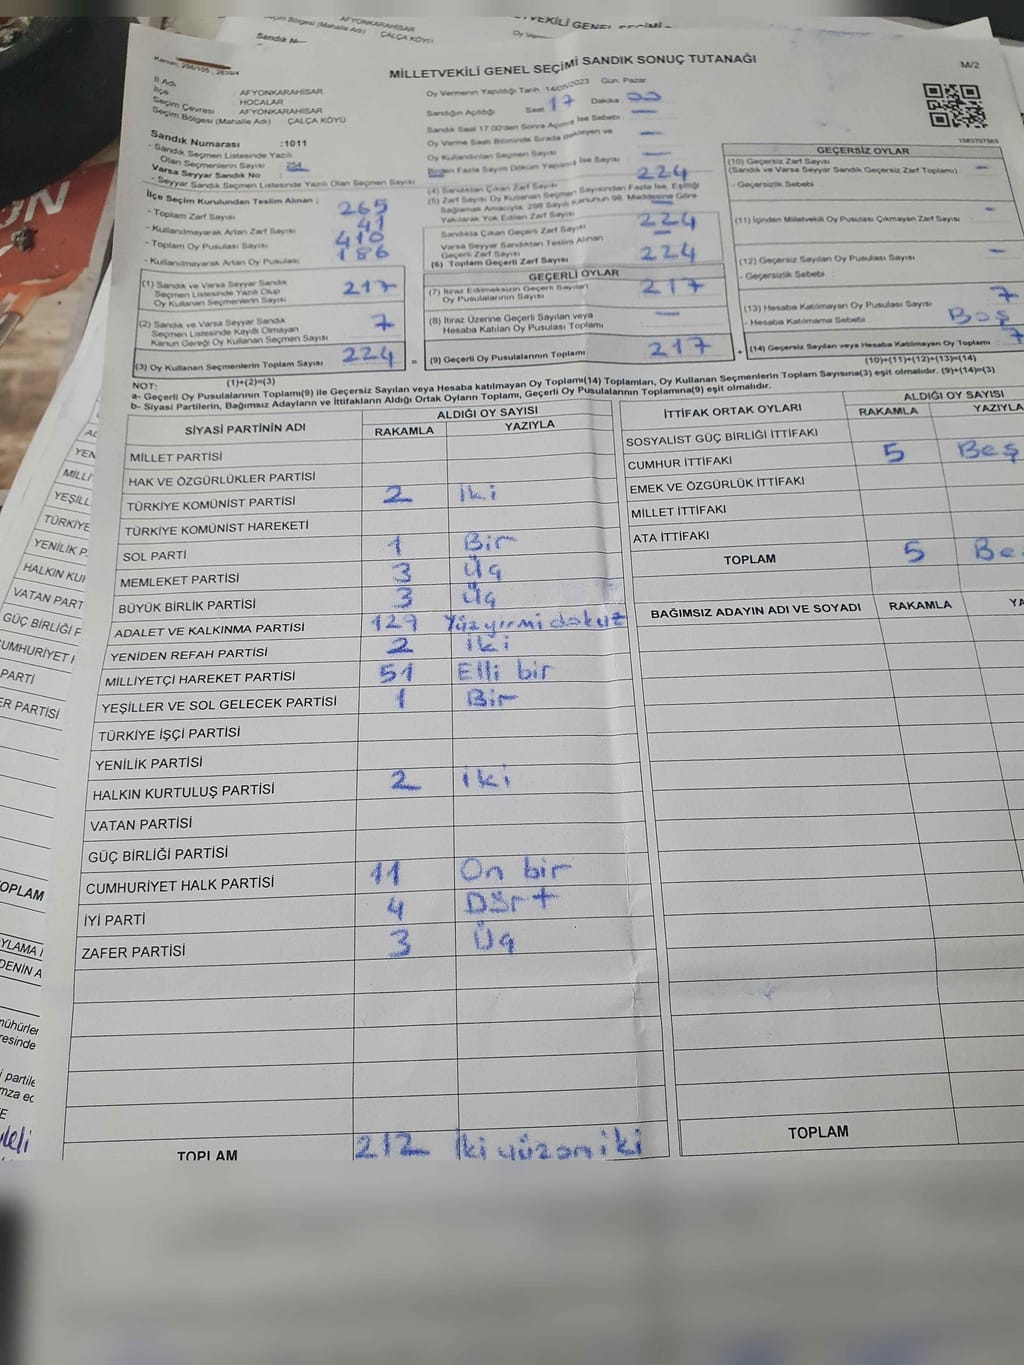 MİLLETVEKİLİ GENEL SEÇİMİ SANDIK SONUÇ TUTANAĞI
M/2
İl Adı : AFYONKARAHİSAR
İlçe : HOCALAR
Seçim Çevresi : AFYONKARAHİSAR
Seçim Bölgesi (Mahalle Adı) ÇALÇA KÖYÜ
Oy Vermenin Yapıldığı Tarih :14/05/2023 Gün: Pazar
Sandığın Açıldığı Saat 17 Dakika 00
Sandık Numarası :1011
- Sandık Seçmen Listesinde Yazılı
Olan Seçmenlerin Sayısı : 254
Varsa Seyyar Sandık No
- Seyyar Sandık Seçmen Listesinde Yazılı Olan Seçmen Sayısı
İlçe Seçim Kurulundan Teslim Alınan :
- Toplam Zarf Sayısı 265
- Kullanılmayarak Artan Zarf Sayısı 41
- Toplam Oy Pusulası Sayısı 410
- Kullanılmayarak Artan Oy Pusulası 186
(1) Sandık ve Varsa Seyyar Sandık
Seçmen Listesinde Yazılı Olup
Oy Kullanan Seçmenlerin Sayısı 217
(2) Sandık ve Varsa Seyyar Sandık
Seçmen Listesinde Kayıtlı Olmayan
Kanun Gereği Oy Kullanan Seçmen Sayısı 7
(3) Oy Kullanan Seçmenlerin Toplam Sayısı 224
(1)+(2)=(3)
Sandık Saat 17.00'den Sonra Açılmış İse Sebebi :
Oy Verme Saati Bitiminde Sırada Bekleyen ve
Oy Kullandırılan Seçmen Sayısı
Birden Fazla Sayım Döküm Yapılmış İse Sayısı
(4) Sandıktan Çıkan Zarf Sayısı 224
(5) Zarf Sayısı Oy Kullanan Seçmen Sayısından Fazla İse, Eşitliği
Sağlamak Amacıyla, 298 Sayılı Kanunun 98. Maddesine Göre
Yakılarak Yok Edilen Zarf Sayısı
Sandıkta Çıkan Geçerli Zarf Sayısı 224
Varsa Seyyar Sandıktan Teslim Alınan
Geçerli Zarf Sayısı
(6) Toplam Geçerli Zarf Sayısı 224
GEÇERLİ OYLAR
(7) İtiraz Edilmeksizin Geçerli Sayılan
Oy Pusulalarının Sayısı 217
(8) İtiraz Üzerine Geçerli Sayılan veya
Hesaba Katılan Oy Pusulası Toplamı
= (9) Geçerli Oy Pusulalarının Toplamı 217
1083707565
GEÇERSİZ OYLAR
(10) Geçersiz Zarf Sayısı
(Sandık ve Varsa Seyyar Sandık Geçersiz Zarf Toplamı) -
- Geçersizlik Sebebi :
(11) İçinden Milletvekili Oy Pusulası Çıkmayan Zarf Sayısı -
(12) Geçersiz Sayılan Oy Pusulası Sayısı -
- Geçersizlik Sebebi
(13) Hesaba Katılmayan Oy Pusulası Sayısı 7
- Hesaba Katılmama Sebebi Boş
+ (14) Geçersiz Sayılan veya Hesaba Katılmayan Oy Toplamı 7
(10)+(11)+(12)+(13)=(14)
NOT:
a- Geçerli Oy Pusulalarının Toplamı(9) ile Geçersiz Sayılan veya Hesaba katılmayan Oy Toplamı(14) Toplamları, Oy Kullanan Seçmenlerin Toplam Sayısına(3) eşit olmalıdır. (9)+(14)=(3)
b- Siyasi Partilerin, Bağımsız Adayların ve İttifakların Aldığı Ortak Oyların Toplamı, Geçerli Oy Pusulalarının Toplamına(9) eşit olmalıdır.
SİYASİ PARTİNİN ADI ALDIĞI OY SAYISI
RAKAMLA YAZIYLA
MİLLET PARTİSİ
HAK VE ÖZGÜRLÜKLER PARTİSİ
TÜRKİYE KOMÜNİST PARTİSİ 2 İki
TÜRKİYE KOMÜNİST HAREKETİ
SOL PARTİ 1 Bir
MEMLEKET PARTİSİ 3 Üç
BÜYÜK BİRLİK PARTİSİ 3 Üç
ADALET VE KALKINMA PARTİSİ 129 Yüzyirmi dokuz
YENİDEN REFAH PARTİSİ 2 İki
MİLLİYETÇİ HAREKET PARTİSİ 51 Elli bir
YEŞİLLER VE SOL GELECEK PARTİSİ 1 Bir
TÜRKİYE İŞÇİ PARTİSİ
YENİLİK PARTİSİ
HALKIN KURTULUŞ PARTİSİ 2 İki
VATAN PARTİSİ
GÜÇ BİRLİĞİ PARTİSİ
CUMHURİYET HALK PARTİSİ 11 On bir
İYİ PARTİ 4 Dört
ZAFER PARTİSİ 3 Üç
TOPLAM 212 İki yüz on iki
İTTİFAK ORTAK OYLARI ALDIĞI OY SAYISI
RAKAMLA YAZIYLA
SOSYALİST GÜÇ BİRLİĞİ İTTİFAKI
CUMHUR İTTİFAKI 5 Beş
EMEK VE ÖZGÜRLÜK İTTİFAKI
MİLLET İTTİFAKI
ATA İTTİFAKI
TOPLAM 5 Be
BAĞIMSIZ ADAYIN ADI VE SOYADI RAKAMLA YA
TOPLAM